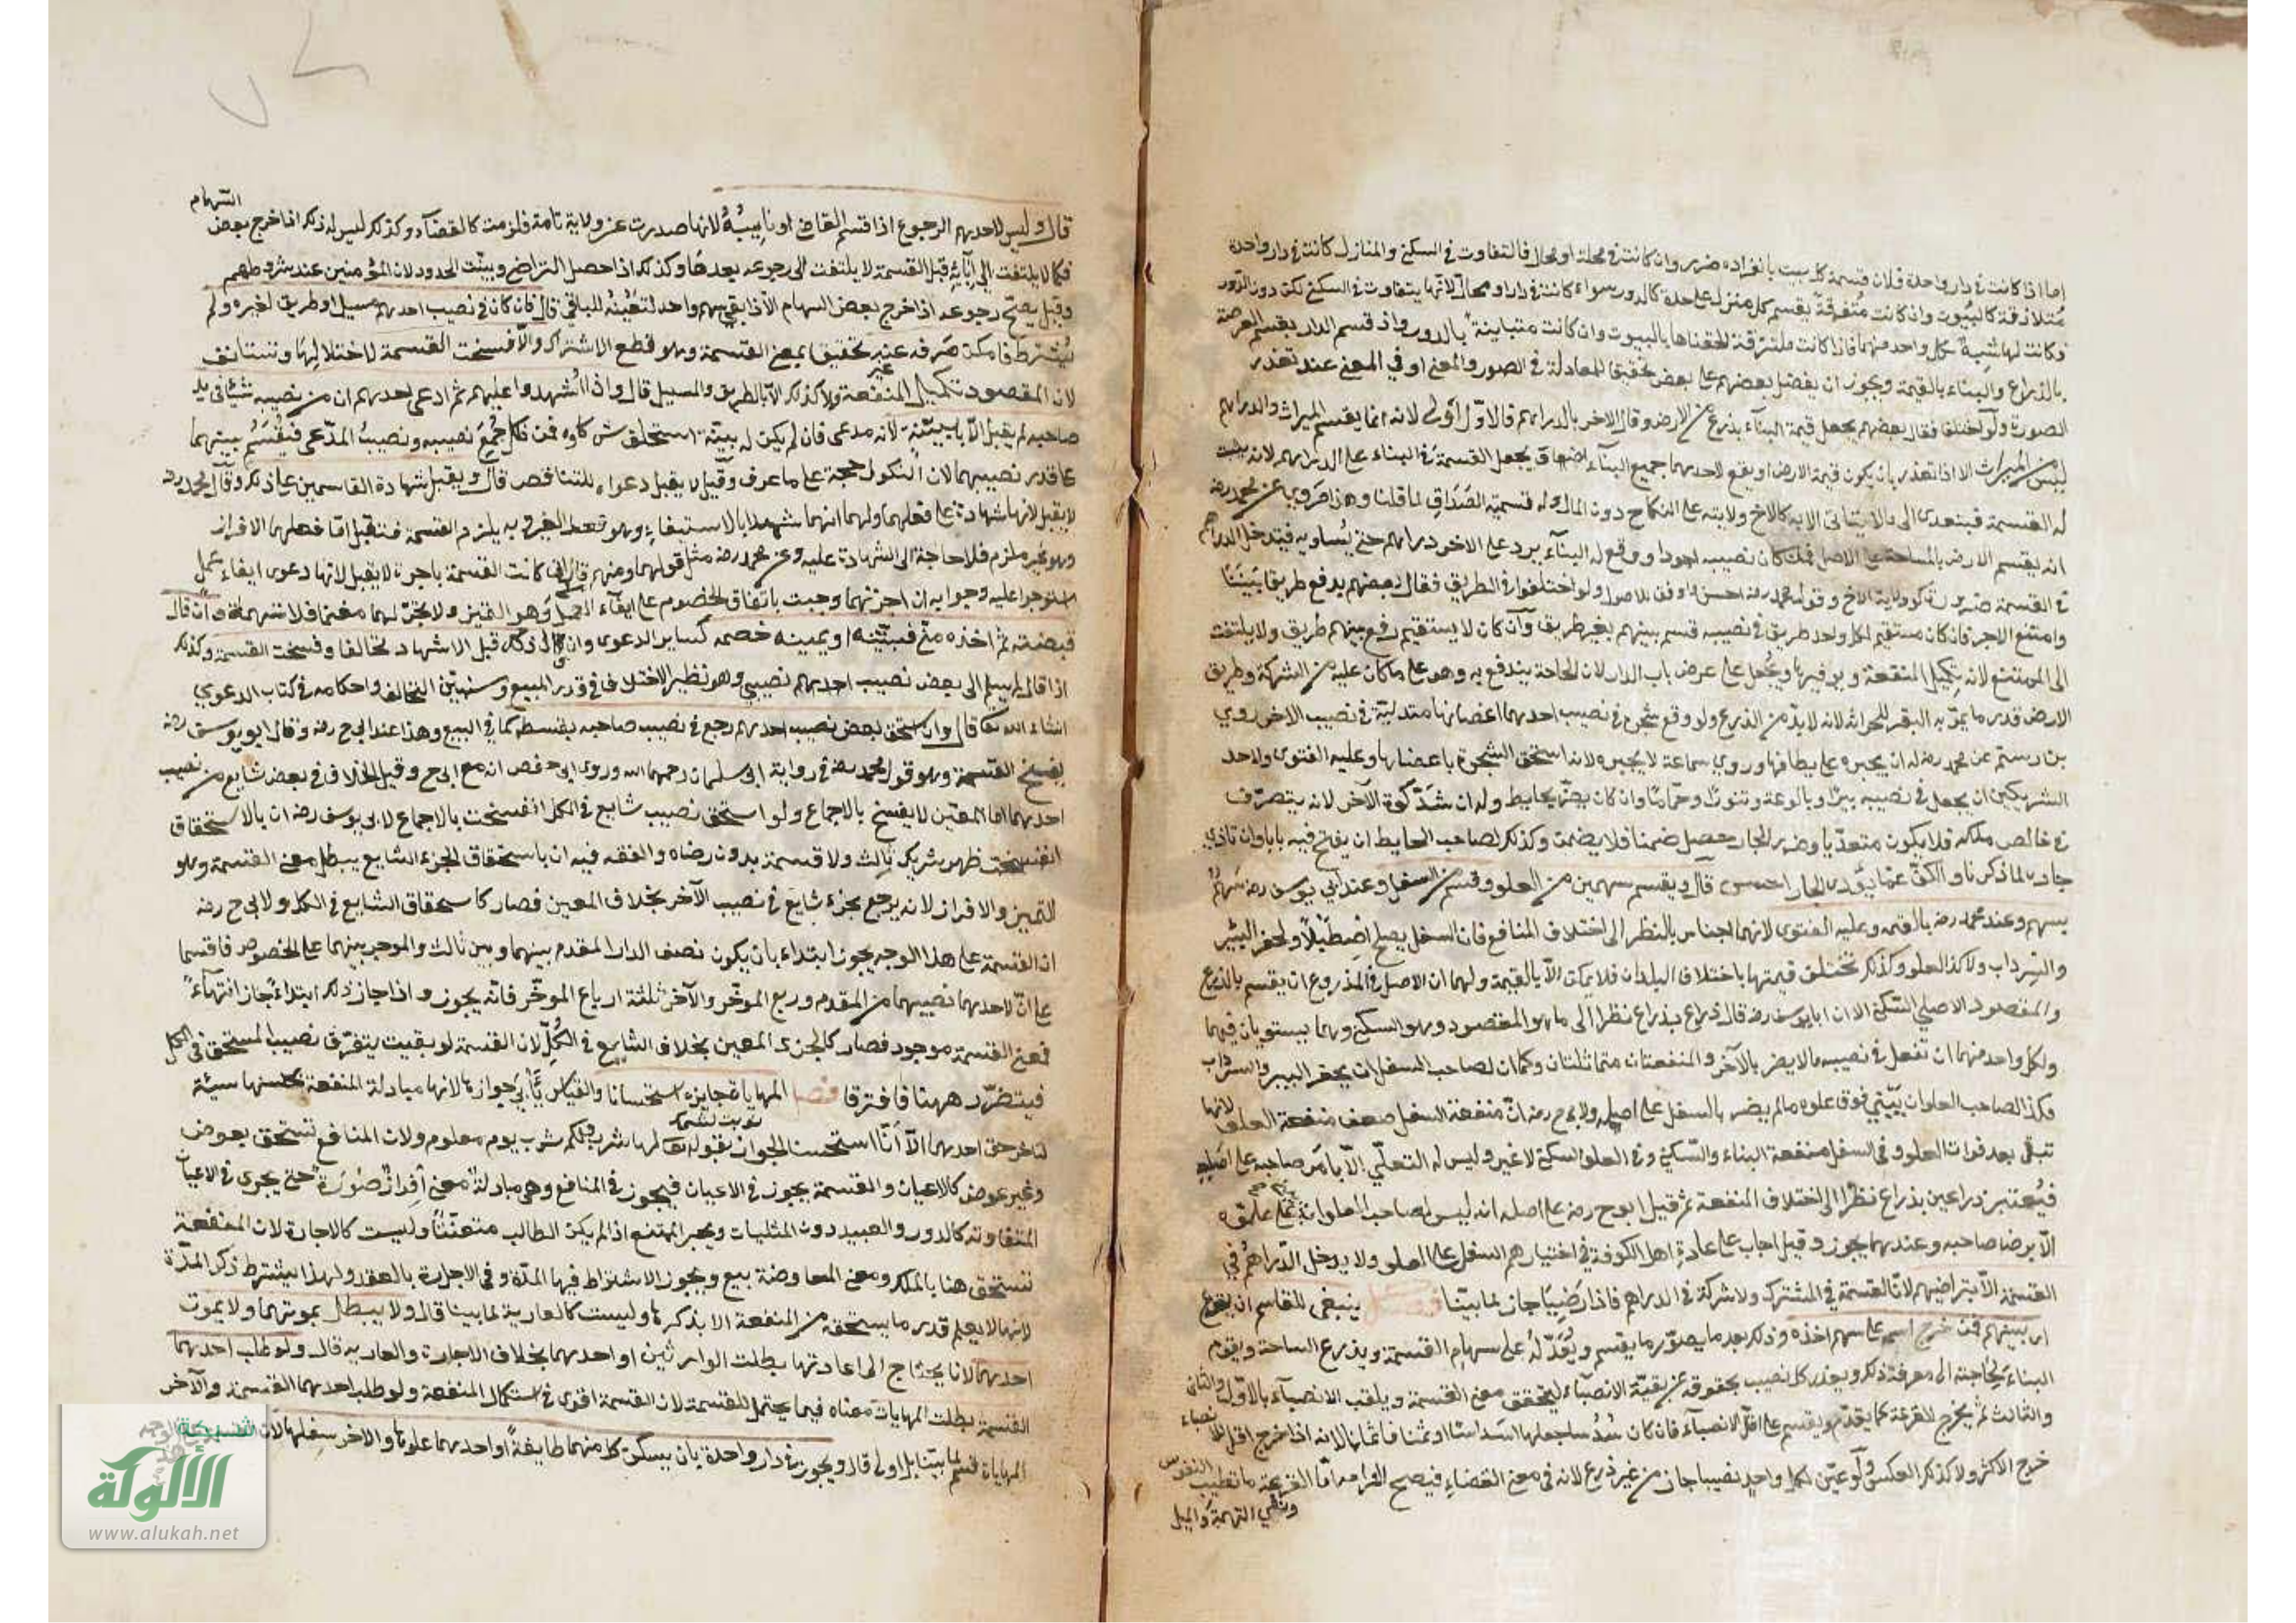 اما اذا كانت في دار واحدة فلان قسمة كل بيت بانفراده ضرر وان كانت في محلة او محال فالتفاوت في السكنى والمنازل كانت في دار واحدة
متلازقة كالبيوت وان كانت متفرقة يقسم كل منزل على حدة كالدور سواء كانت في دار او محال لانها يتفاوت في السكنى لكن دون الدور
فكانت لها شبه بكل واحد منهما فاذا كانت ملتزقة الحقناها بالبيوت وان كانت متباينة بالدور واذ قسم الدار يقسم العرصة
بالذراع والبناء بالقيمة ويجوز ان يفضل بعضهم على بعض تحقيقا للمعادلة في الصورة والمعنى او في المعنى عند تعذر
الصورة ولو اختلفا فقال بعضهم يجعل قيمة البناء بذرع من الارض وقال الاخر بالدراهم فالاول اولى لانه انما يقسم الميراث والدراهم
ليس من الميراث الا اذا تعذر بان يكون قيمة الارض او يقع لاحدهما جميع البناء يجعل القسمة في البناء على الدراهم لانه
له القسمة فيتعدى الى ما لا يتأتى الا به كالاخ ولايته على النكاح دون المال وله قسمية الصداق لما قلنا وهذا مروي عن محمد رضه
انه يقسم الارض بالمساحة على الاصل فمن كان نصيبه اجود او وقع له البناء يرد على الاخر دراهم حتى يساويه فيدخل الدراهم
في القسمة ضرورة كولاية الاخ وقول محمد رضه احسن واوفق للاصول ولو اختلفوا في الطريق فقال بعضهم يدفع طريقا بيننا
وامتنع الاخر فان كان مستقيم لكل واحد طريق في نصيبه قسم بينهم بغير طريق وان كان لا يستقيم رفع بينهم طريق ولا يلتفت
الى الممتنع لانه تكميل المنفعة وتوفيرها ويجعل على عرض باب الدار لان الحاجة يندفع به وهو على ما كان عليه من الشركة وطريق
الارض قدر ما يمر به البقر للحراثة لانه لا بد من الذرع ولو وقع شجرة في نصيب احدهما اغصانها متدلية في نصيب الاخر روي
بن رستم عن محمد رضه له ان يجبره على قطافها وروي سماعة لا يجبره لانه استحق الشجرة باغصانها وعليه الفتوى ولاحد
الشريكين ان يجعل في نصيبه بيرا وبالوعة وتنورا وحماما وان كان يضر بحايط وله ان شد كوة الآخر لانه يتصرف
في خالص ملكه فلا يكون متعديا وضرر الجار حصل ضمنا فلا يضمن وكذلك لصاحب الحايط ان يفتح فيه بابا وان تأذى
جاره لما ذكرنا والكف عما يؤذى الجار احسن قال ويقسم سهمين من العلو وقسم من السفل وعند ابي يوسف رضه سهم
بسهم وعند محمد رضه بالقيمة وعليه الفتوى لانهما اجناس بالنظر الى اختلاف المنافع فان السفل يصلح اصطبلا ولحفر البئر
والسرداب ولا كذا العلو وكذلك تختلف قيمتها باختلاف البلدان فلا يمكن الا بالقيمة ولهما ان الاصل في المذروع ان يقسم بالذرع
والمقصود الاصلي السكنى الا ان ابا يوسف رضه قال ذراع بذراع نظرا الى ما هو المقصود وهو السكنى وهما يستويان فيهما
ولكل واحد منهما ان تفعل في نصيبه ما لا يضر بالآخر والمنفعتان متماثلتان وكما ان لصاحب السفل ان يحفر البير والسرداب
فكذا لصاحب العلو ان يبني فوق علوه ما لم يضر بالسفل على اصله ولابي ح رضه ان منفعة السفل ضعف منفعة العلو لانها
تبقى بعد فوات العلو وفي السفل منفعة البناء والسكنى وفي العلو السكنى لا غير وليس له التعلي الا بأمر صاحبه على اصله
فيعتبر ذراعين بذراع نظرا الى اختلاف المنفعة ثم قيل ابو ح رضه على اصله انه ليس لصاحب العلو ان يبني على علوه
الا برضا صاحبه وعندهما يجوز وقيل اجاب على عادة اهل الكوفة في اختيارهم السفل على العلو ولا يدخل الدراهم في
القسمة الا بتراضيهم لان القسمة في المشترك ولا شركة في الدراهم فاذا رضيا جاز لما بينا فصل ينبغي للقاسم ان يقرع
بينهم فمن خرج اسمه على سهم اخذه وذلك بعد ما يصور ما يقسم ويعدله على سهام القسمة ويذرع الساحة ويقوم
البناء لحاجته الى معرفة ذلك ويفرز كل نصيب بحقوقه عن بقية الانصباء ليتحقق معنى القسمة ويلقب الانصباء بالاول والثاني
والثالث ثم يخرج للقرعة كما يقدم ويقسم على اقل الانصباء فان كان سدسا جعلها اسداسا او ثمنا فاثمانا لانه اذا خرج اقل الانصباء
خرج الاكثر ولا كذلك العكس ولو عين لكل واحد نصيبا جاز من غير قرع لانه في معنى القضاء فيصح الزامه اما القرعة ما تطييب النفوس
ونفي التهمة والميل
قال وليس لاحدهم الرجوع اذا قسم القاضي او نايبه لانها صدرت عن ولاية تامة فلزمت كالقضاء وكذلك ليس له ذلك اذا خرج بعض السهام
فكما لا يلتفت الى ابائه قبل القسمة لا يلتفت الى رجوعه بعدها وكذلك اذا حصل التراضي وبينت الحدود لان المؤمنين عند شروطهم
وقيل يصح رجوعه اذا خرج بعض السهام الا اذا بقي سهم واحد لتعينه للباقي قال فان كان في نصيب احدهم مسيل او طريق لغيره ولم
يشترط فامكن صرفه عنه تحقيقا بمعنى القسمة وهو قطع الاشتراك والا فسخت القسمة لاختلالها وتستانف
لان المقصود تكميل المنفعة ولا كذلك الا بالطريق والمسيل قال واذا اشهدوا عليهم ثم ادعى احدهم ان من نصيبه شيئا في يد
صاحبه لم يقبل الا ببينة لانه مدعى فان لم يكن له بينة استحلف شركاءه فمن نكل جمع نصيبه ونصيب المدعى فيقسم بينهما
على قدر نصيبهما لان النكول حجة على ما عرف وقيل لا يقبل دعواه للتناقض قال ويقبل شهادة القاسمين على ذلك وقال محمد رضه
لا يقبل لانها شهادة على فعلهما ولهما انهما شهدا بالاستيفاء وهو فعل الغير وبه يلزم القسمة فتقبل اما فعلهما الافراز
وهو غير ملزم فلا حاجة الى الشهادة عليه وعن محمد رضه مثل قولهما ومنهم قال ان كانت القسمة باجرة لا يقبل لانها دعوى ايفاء عمل
استوجرا عليه وجوابه ان اجرتهما وجبت باتفاق الخصوم على ايفاء العمل وهو التميز ولا يجر لهما مغنما فلا تهمة وان قال
قبضته ثم اخذه مني فببينته او يمينه خصمه كساير الدعوى وان قال ذلك قبل الاشهاد تحالفا وفسخت القسمة وكذلك
اذا قال لم يسلم الى بعض نصيب احدهم نصيبي وهو نظير الاختلاف في قدر المبيع وسنبين التحالف واحكامه في كتاب الدعوي
انشاء الله تعا قال وان استحق بعض نصيب احدهم رجع في نصيب صاحبه بقسطه كما في البيع وهذا عند ابي ح رضه وقال ابو يوسف رضه
يفسخ القسمة وهو قول محمد رضه في رواية ابى سلمان رحمهما الله وروى ابى حفص انه مع ابى ح وقيل الخلاف في بعض شايع من نصيب
احدهما اما المعين لا يفسخ بالاجماع ولو استحق نصيب شايع في الكل انفسخت بالاجماع لابى يوسف رضه ان بالاستحقاق
انفسخت ظهر شريك ثالث ولا قسمة بدون رضاه والفقه فيه ان باستحقاق الجزء الشايع يبطل معنى القسمة وهو
التميز والافراز لانه يرجع بجزء شايع في نصيب الآخر بخلاف المعين فصار كاستحقاق الشايع في الكل ولابي ح رضه
ان القسمة على هذا الوجه يجوز ابتداء بان يكون نصف الدار المقدم بينهما وبين ثالث والموخر بينهما على الخصوص فاقتسما
على ان لاحدهما نصيبهما من المقدم وربع الموخر والآخر ثلثة ارباع الموخر فانه يجوز واذا جاز ذلك ابتداء جاز انتهاء
فمعنى القسمة موجود فصار كالجزء المعين بخلاف الشايع في الكل لان القسمة لو بقيت يتفرق نصيب المستحق في الكل
فيتضرر ههنا فافترقا فصل المهاياة جايزة استحسانا والقياس يأبى جوازها لانها مبادلة المنفعة بجنسها نسيئة
لتاخر حق احدهما الا انا استحسنا الجواز بقوله تعا لها شرب ولكم شرب يوم معلوم ولان المنافع تستحق بعوض
وغير عوض كالاعيان والقسمة يجوز في الاعيان فيجوز في المنافع وهي مبادلة معنى افراز صورة حتى يجرى في الاعيان
المتفاوتة كالدور والعبيد دون المثليات ويجبر الممتنع اذا لم يكن الطالب متعنتا وليست كالاجارة لان المنفعة
تستحق هنا بالملك ومعنى المعاوضة بيع ويجوز الاشتراط فيها المدة وفي الاجارة بالعقد ولهذا يشترط ذكر المدة
لانها لا يعلم قدر ما يستحقه من المنفعة الا بذكرها وليست كالعارية لما بينا قال ولا يبطل بموتهما ولا يموت
احدهما لانا يحتاج الى اعادتها بطلت الوارثين او احدهما بخلاف الاجارة والعارية قال ولو طلب احدهما
القسمة بطلت المهايات معناه فيما يحتمل للقسمة لان القسمة اقوى في استكمال المنفعة ولو طلب احدهما القسمة والآخر
المهاياة قسم لما بينا بل اولى قال ويجوز في دار واحدة بان يسكن كل منهما طايفة او احدهما علوها والاخر سفلها لان
شبكة
الألوكة
www.alukah.net